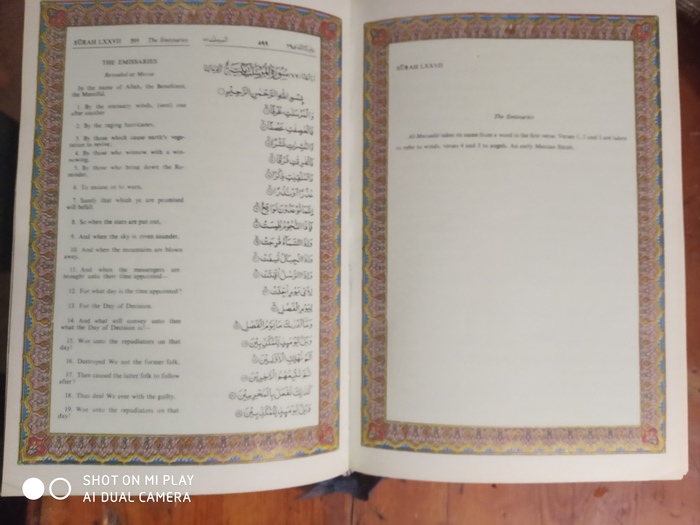 SŪRAH LXXVII
The Emissaries
THE EMISSARIES
Revealed at Mecca
In the name of Allah, the Beneficent,
the Merciful.
1. By the emissary winds, (sent) one
after another
2. By the raging hurricanes,
3. By those which cause earth's vege-
tation to revive;
4. By those who winnow with a win-
nowing,
5. By those who bring down the Re-
minder,
6. To excuse or to warn,
7. Surely that which ye are promised
will befall.
8. So when the stars are put out,
9. And when the sky is riven asunder,
10. And when the mountains are blown
away,
11. And when the messengers are
brought unto their time appointed—
12. For what day is the time appointed?
13. For the Day of Decision.
14. And what will convey unto thee
what the Day of Decision is!—
15. Woe unto the repudiators on that
day!
16. Destroyed We not the former folk,
17. Then caused the latter folk to follow
after?
18. Thus deal We ever with the guilty.
19. Woe unto the repudiators on that
day!
بِسْمِ اللهِ الرَّحْمٰنِ الرَّحِيْمِ
وَالْمُرْسَلٰتِ عُرْفًا
فَالْعٰصِفٰتِ عَصْفًا
وَالنّٰشِرٰتِ نَشْرًا
فَالْفٰرِقٰتِ فَرْقًا
فَالْمُلْقِيٰتِ ذِكْرًا
عُذْرًا اَوْ نُذْرًا
اِنَّمَا تُوْعَدُوْنَ لَوَاقِعٌ
فَاِذَا النُّجُوْمُ طُمِسَتْ
وَاِذَا السَّمَآءُ فُرِجَتْ
وَاِذَا الْجِبَالُ نُسِفَتْ
وَاِذَا الرُّسُلُ اُقِّتَتْ
لِاَيِّ يَوْمٍ اُجِّلَتْ
لِيَوْمِ الْفَصْلِ
وَمَآ اَدْرٰىكَ مَا يَوْمُ الْفَصْلِ
وَيْلٌ يَّوْمَئِذٍ لِّلْمُكَذِّبِيْنَ
اَلَمْ نُهْلِكِ الْاَوَّلِيْنَ
ثُمَّ نُتْبِعُهُمُ الْاٰخِرِيْنَ
كَذٰلِكَ نَفْعَلُ بِالْمُجْرِمِيْنَ
وَيْلٌ يَّوْمَئِذٍ لِّلْمُكَذِّبِيْنَ
SŪRAH LXXVII
The Emissaries
Al-Mursalât takes its name from a word in the first verse. Verses 1, 2 and 3 are taken
to refer to winds, verses 4 and 5 to angels. An early Meccan Sûrah.
SHOT ON MI PLAY
AI DUAL CAMERA